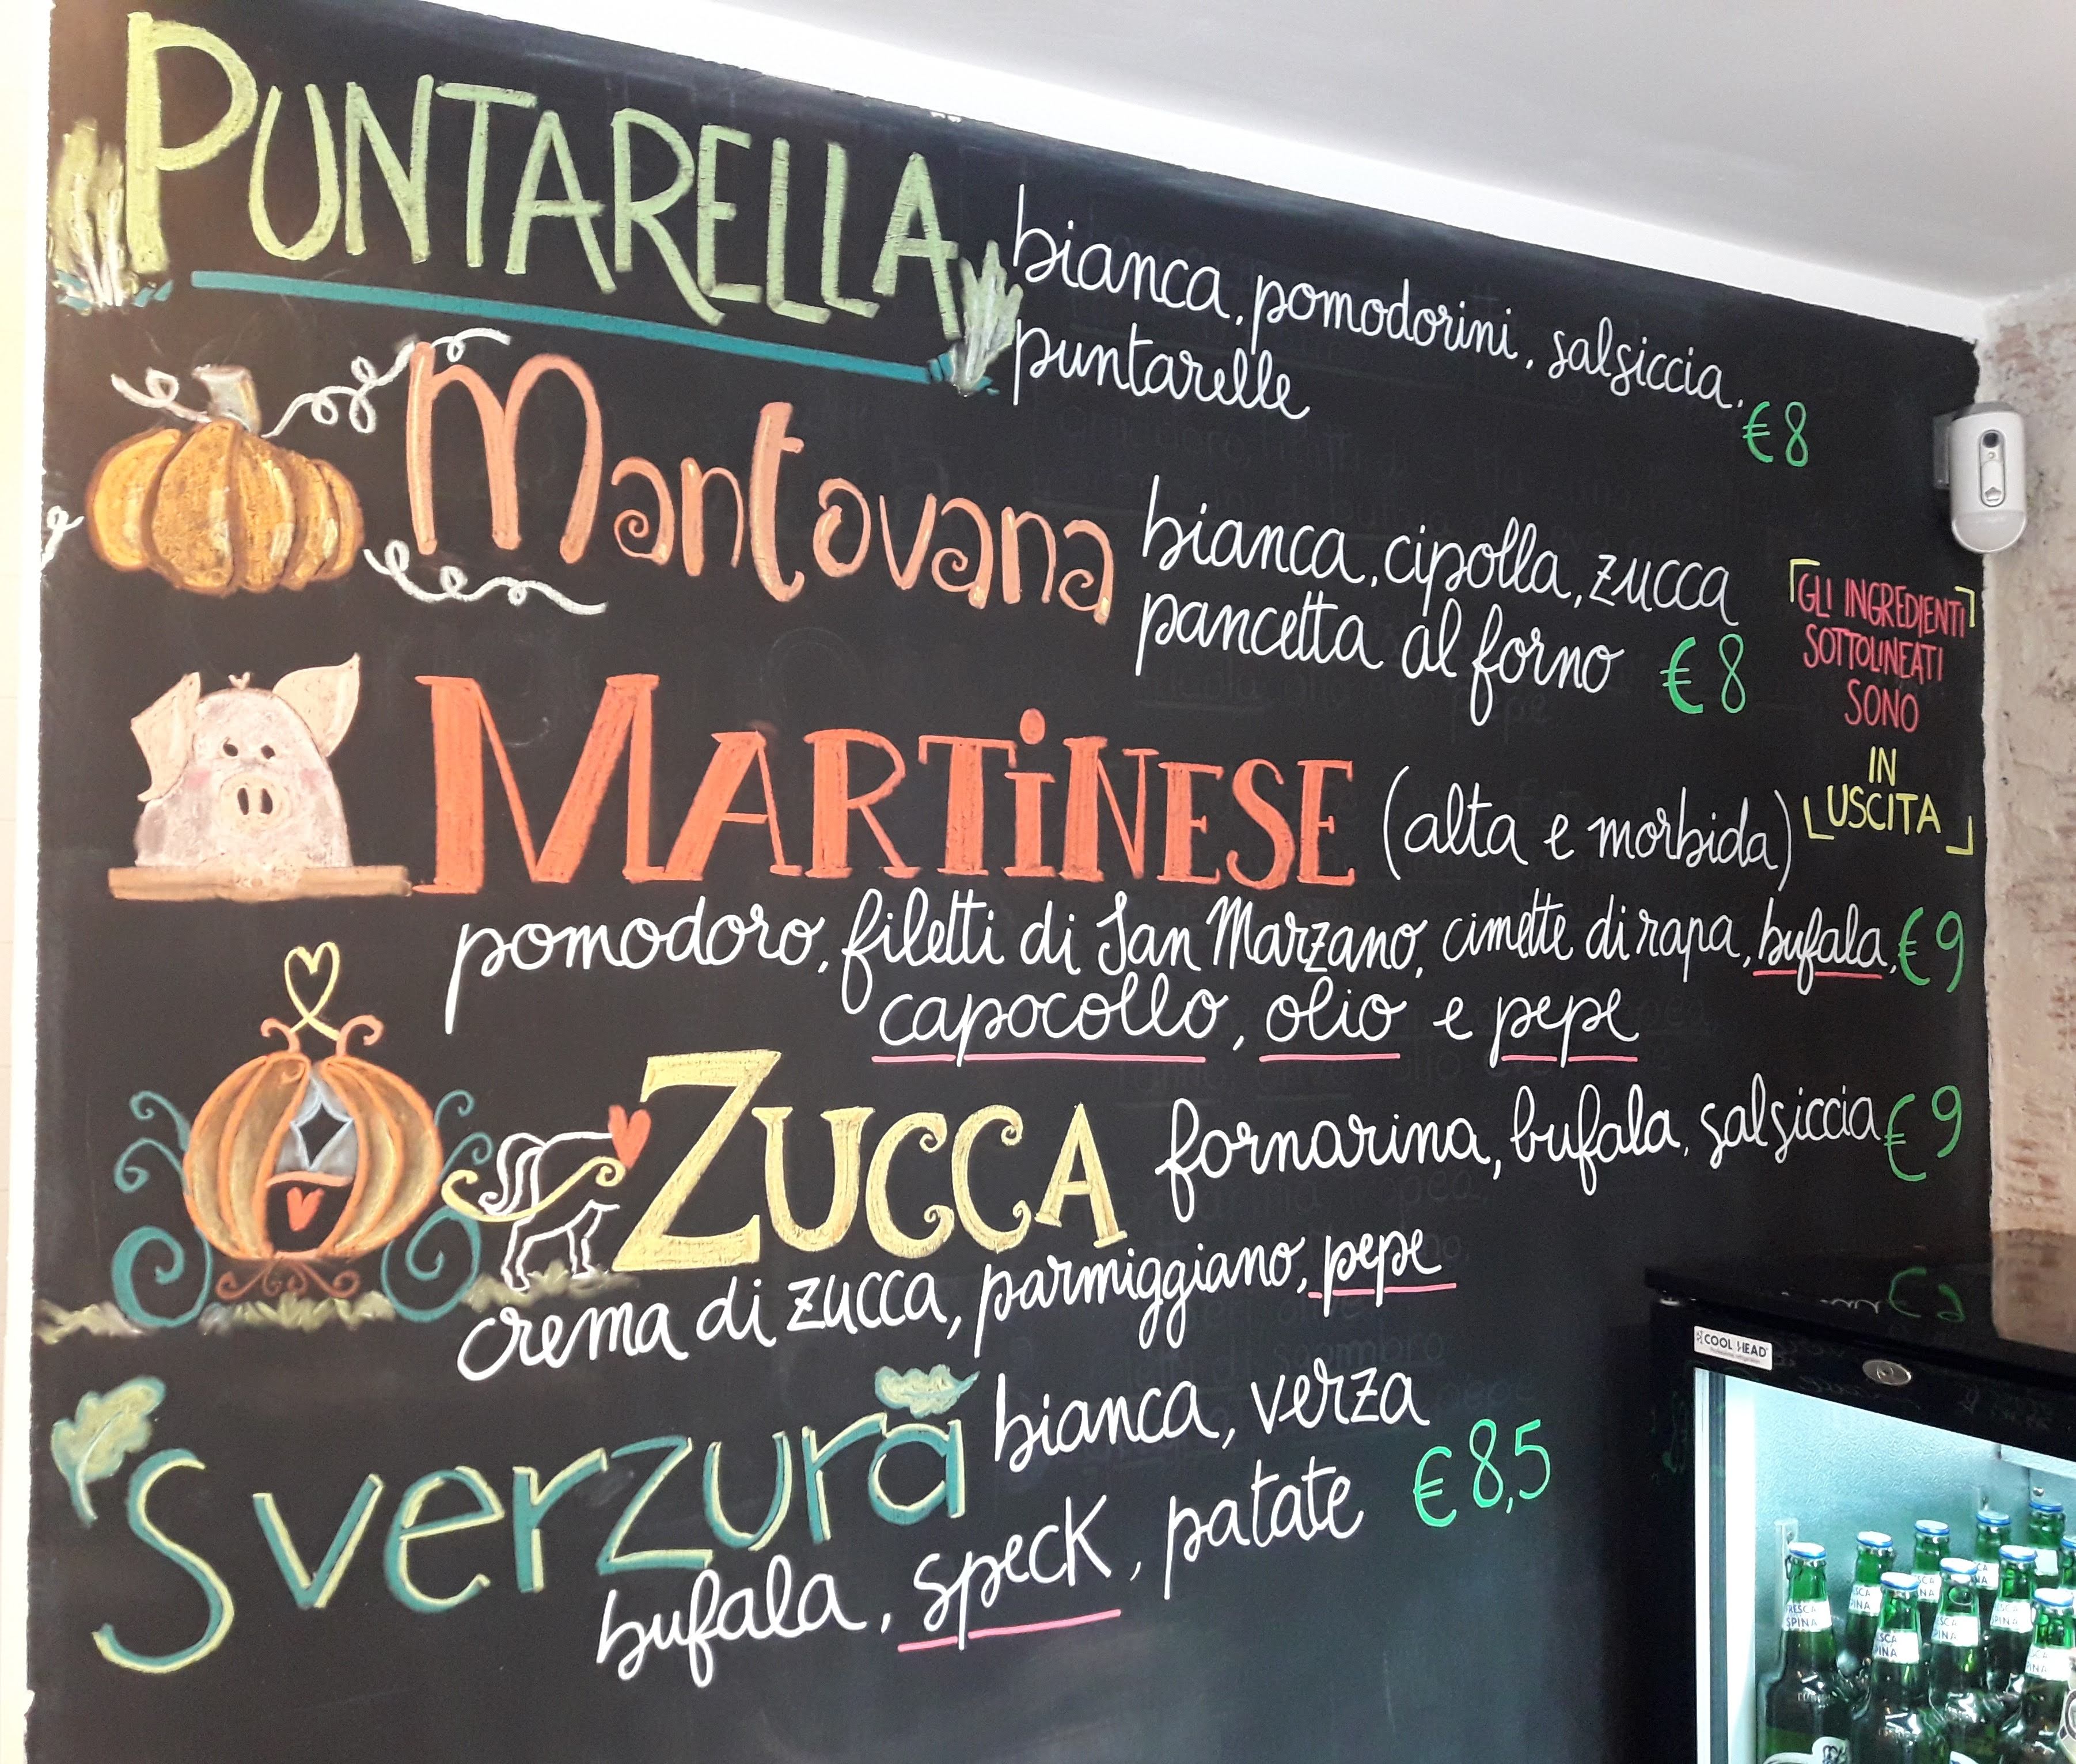 PUNTARELLA
bianca, pomodorini, salsiccia,
puntarelle
€8
Mantovana
bianca, cipolla, zucca
pancetta al forno €8
GLI INGREDIENTI
SOTTOLINEATI
SONO
IN
USCITA
MARTiNESE (alta e morbida)
pomodoro, filetti di San Marzano, cimette di rapa, bufala, €9
capocollo, olio e pepe
ZUCCA fornarina, bufala, salsiccia €9
crema di zucca, parmiggiano, pepe
Sverzura bianca, verza
bufala, speck, patate €8,5
COOL HEAD
FRESCA
SPINA